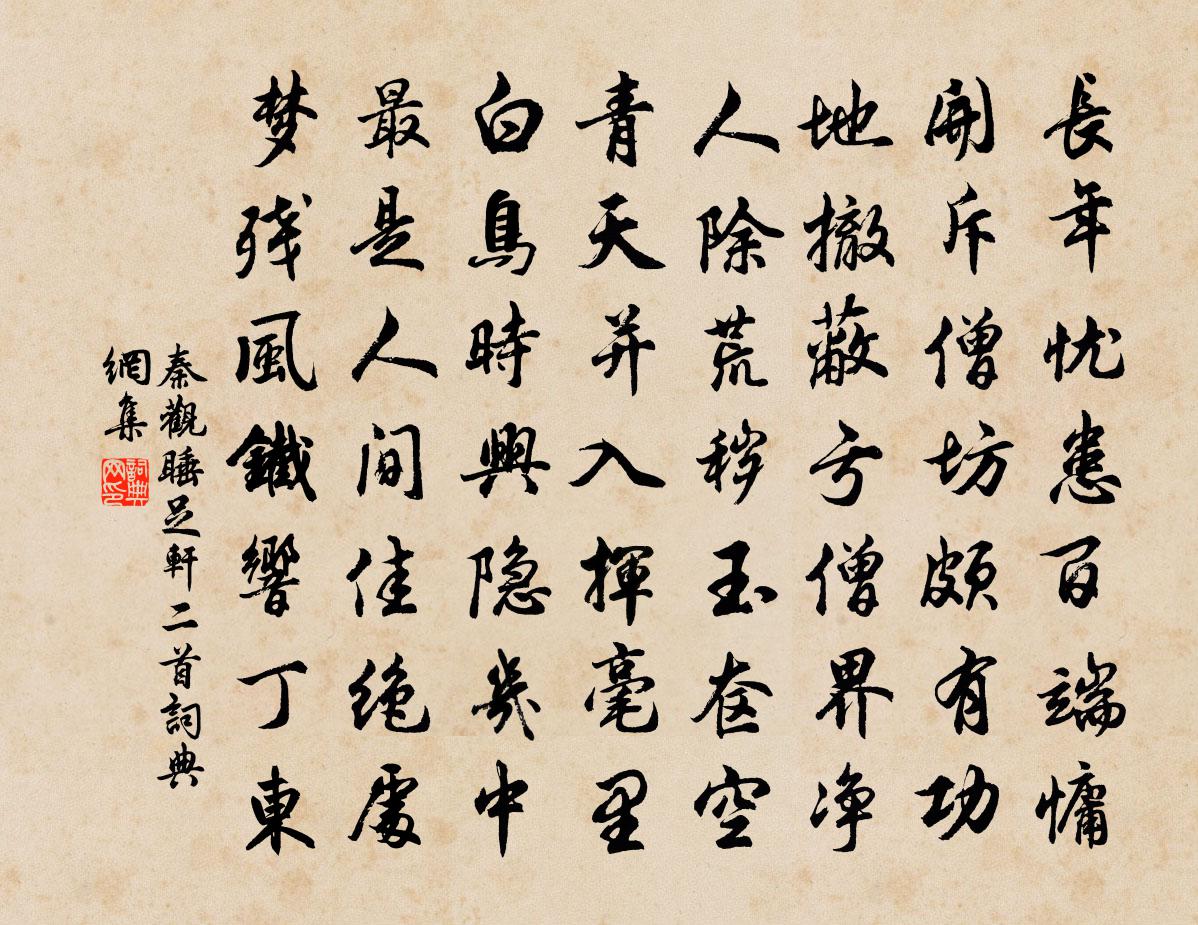 長年忧患百端慵
開斥僧坊頗有功
地撤蔽亏僧界净
人除荒秽玉奁空
青天并入揮毫里
白鳥時興隐幾中
最是人間佳绝處
梦残風鐵響丁東
秦觀睡足軒二首詞典
網集
詞典
网印